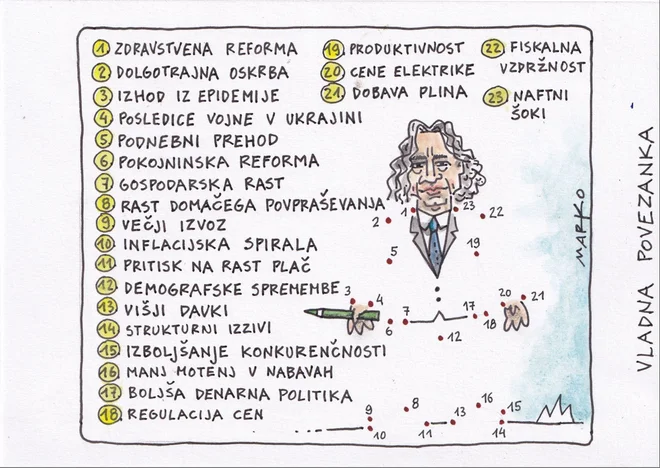 1. ZDRAVSTVENA REFORMA
2. DOLGOTRAJNA OSKRBA
3. IZHOD IZ EPIDEMIJE
4 POSLEDICE VOJNE V UKRAJINI
5 PODNEBNI PREHOD
6 POKOJNINSKA REFORMA
7 GOSPODARSKA RAST
8 RAST DOMAČEGA POVPRAŠEVANJA
9 VEČJI IZVOZ
10 INFLACIJSKA SPIRALA
11 PRITISK NA RAST PLAČ
12 DEMOGRAFSKE SPREMEMBE
13 VIŠJI DAVKI
14 STRUKTURNI IZZIVI
15 IZBOLJŠANJE KONKURENČNOSTI
16 MANJ MOTENJ V NABAVAH
17 BOLJŠA DENARNA POLITIKA
18. REGULACIJA CEN
19. PRODUKTIVNOST
20. CENE ELEKTRIKE
21. DOBAVA PLINA
22 FISKALNA
VZDRŽNOST
23 NAFTNI
ŠOKI
1
23
2
22
5
19
3
4
20
21
6
7
17
18
12
9
8
16
15
10
11
13
14
MARKO
VLADNA POVEZANKA